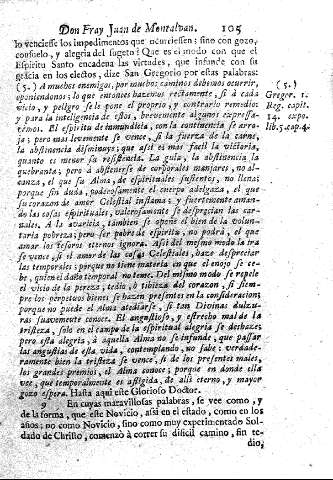 Don Fray Juan de Montalvan. 105
lo venciesse los impedimentos que ocurriessen: sino con gozo,
consuelo, y alegria del sugeto? Que es el modo con que el
Espiritu Santo encadena las virtudes, que infunde con su
gracia en los electos, dize San Gregorio por estas palabras:
(5.) A muchos enemigos, por muchos caminos debimos ocurrir,
oponiendonos: lo que entonces hazemos rectamente, si à cada
vicio, y peligro se le pone el proprio, y contrario remedio:
y para la inteligencia de esto, brevemente algunos expressa-
rèmos. El espiritu de inmundicia, con la continencia se arro-
ja; pero mas levemente se vence, si la fuerza de la carne,
la abstinencia disminuye; que assi es mas facil la victoria,
quanto es menor su resistencia. La gula, la abstinencia la
quebranta; pero à abstenerse de corporales manjares, no al-
canza, el que su Alma, de espirituales sustentos, no llena;
porque sin duda, poderosamente el cuerpo adelgaza, el que
su corazon de amor Celestial inflama: y fuertemente aman-
do las cosas espirituales, valerosamente se desprecian las car-
nales. A la avaricia, tambien se opone el bien de la volun-
taria pobreza; pero ser pobre de espiritu, no podrà, el que
amar los tesoros eternos ignora. Assi del mismo modo la ira
se vence, si el amor de las cosas Celestiales, haze despreciar
las temporales; porque no tiene materia en que el enojo se ce-
be, quien el daño temporal no teme. Del mismo modo se repele
el vicio de la pereza, tedio, ò tibieza del corazon, si siem-
pre los perpetuos bienes se hazen presentes en la consideracion;
porque no puede el Alma atediarse, si tan Divinas dulzu-
ras suavemente conoce. El angustioso, y estrecho mal de la
tristeza, solo en el campo de la espiritual alegria se deshaze;
pero esta alegria, à aquella Alma no se infunde, que passar
las angustias de esta vida, contemplando, no sabe: verdade-
ramente bien la tristeza se vence, si de los presentes males,
los grandes premios, el Alma conoce; porque en donde ella
vee, que temporalmente es afligida, de alli eterno, y mayor
gozo espera. Hasta aqui este Glorioso Doctor.
9 En cuyas maravillosas palabras, se vee como, y
de la forma, que este Novicio, assi en el estado, como en los
años; no como Novicio, sino como muy experimentado Sol-
dado de Christo, comenzò à correr su dificil camino, sin te-
dio,
(5.)
Gregor. 1.
Reg. capit.
14. expo.
lib. 5. cap. 4.